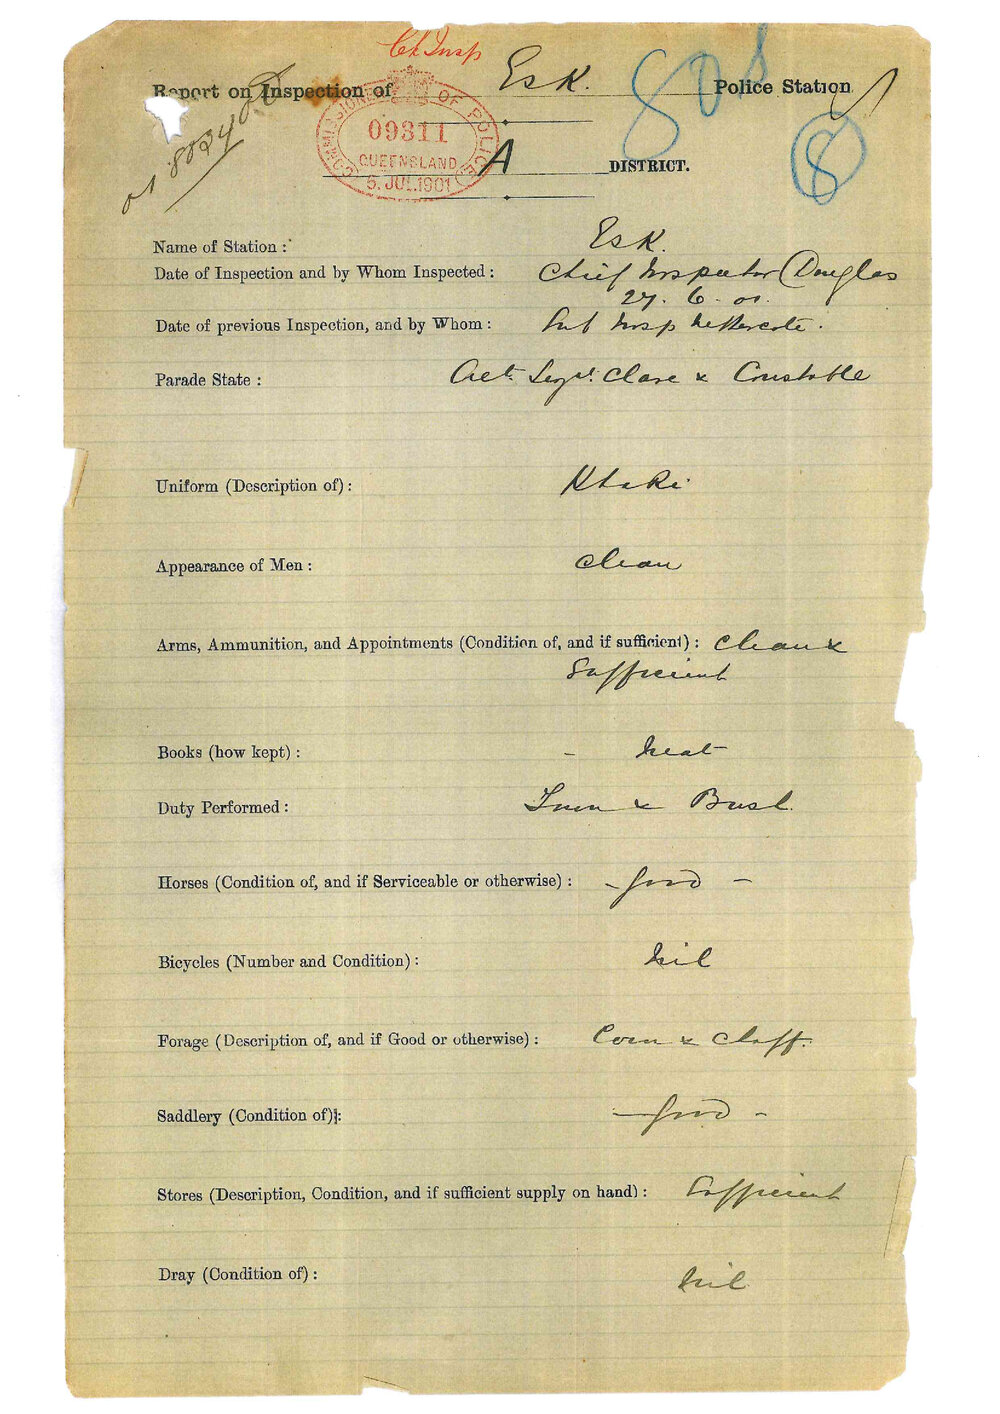 Ch Insp
Report on Inspection of Esk. Police Station
COMMISSIONER OF POLICE
09311
QUEENSLAND
5. JUL. 1901
A DISTRICT.
80
8
Name of Station : Esk.
Date of Inspection and by Whom Inspected : Chief Inspector Douglas
27. 6. 01.
Date of previous Inspection, and by Whom : Sub Insp Nethercote.
Parade State : Act. Sergt. Clare & Constable
Uniform (Description of) : Khaki
Appearance of Men : clean
Arms, Ammunition, and Appointments (Condition of, and if sufficient) : clean &
Sufficient
Books (how kept) : - neat
Duty Performed : Town & Bush.
Horses (Condition of, and if Serviceable or otherwise) : - good -
Bicycles (Number and Condition) : nil
Forage (Description of, and if Good or otherwise) : Corn & Chaff.
Saddlery (Condition of) : - good -
Stores (Description, Condition, and if sufficient supply on hand) : Sufficient
Dray (Condition of) : nil